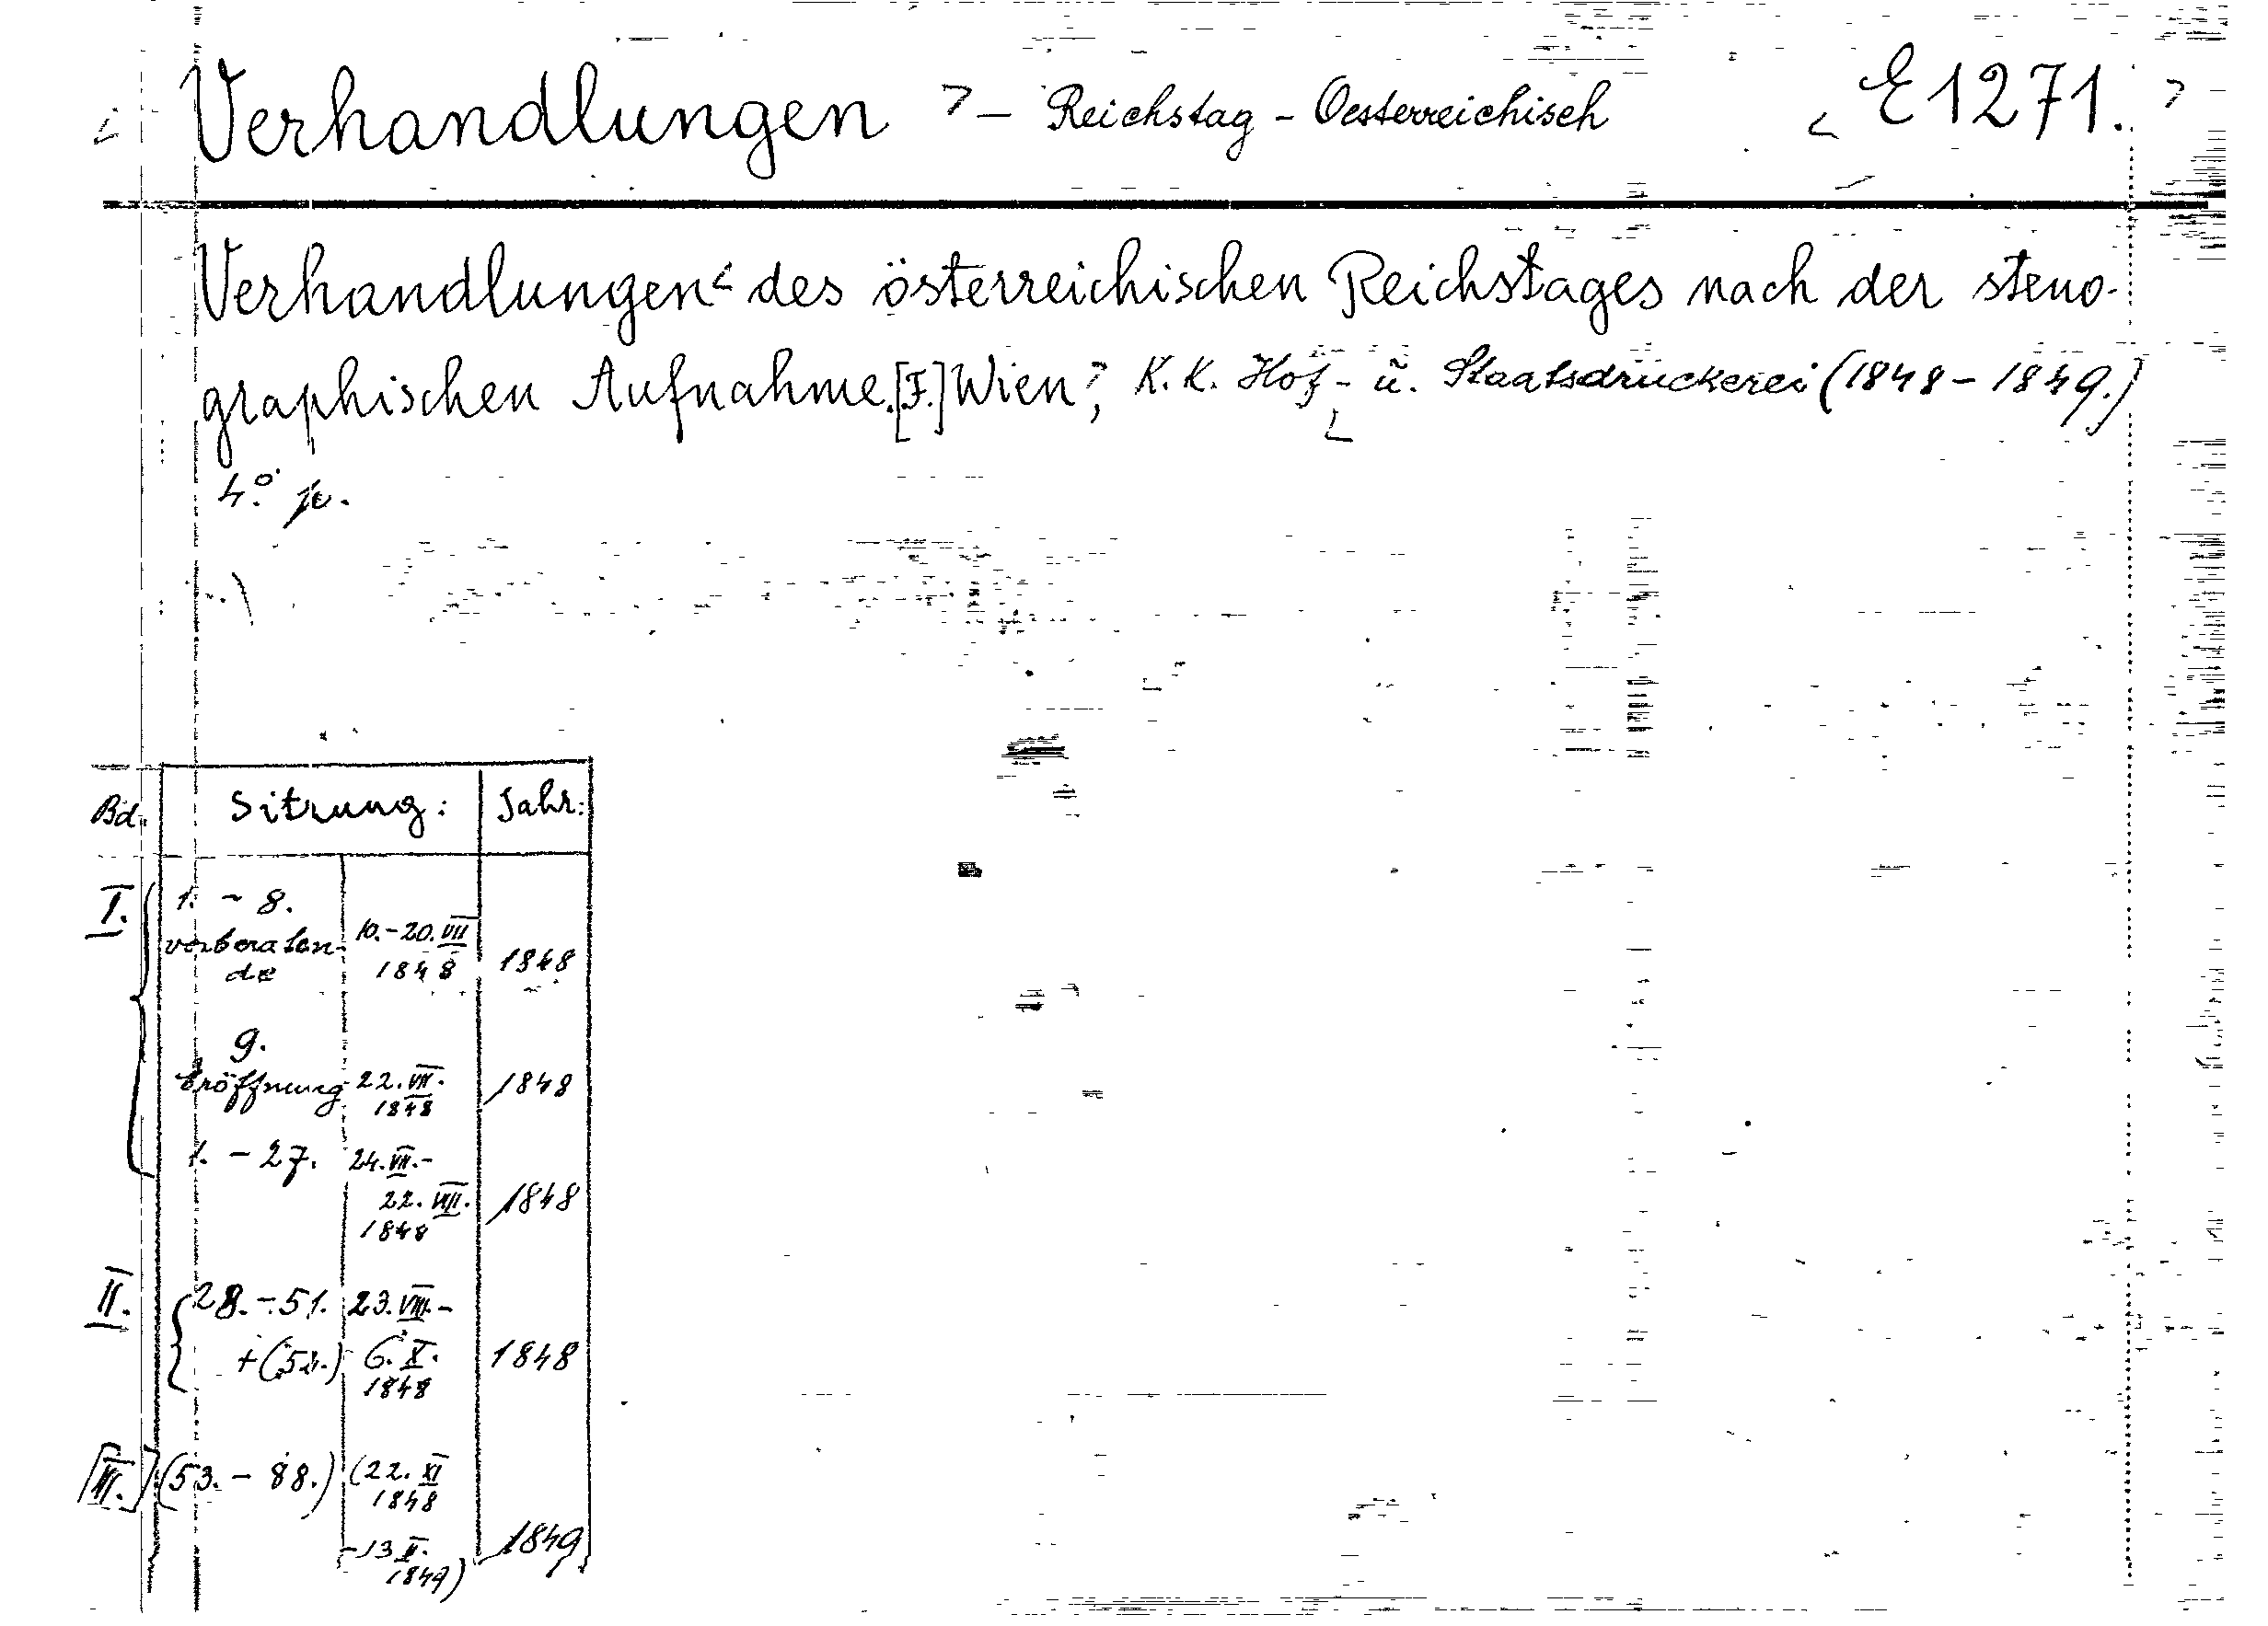 < Verhandlungen > – Reichstag - Oesterreichisch < E1271. >
Verhandlungen < des österreichischen Reichstages nach der steno-
graphischen Aufnahme. [F.] Wien >, K. K. Hof - u. Staatsdruckerei (1848 - 1849.)
4.°
Bd. Sitzung: Jahr:
I. 1. - 8. vorberaten-
de 10.-20. VII 1848 1848
9.
Eröffnung 22. VII. 1848 1848
1. - 27. 24. VII. -
22. VIII. 1848 1848
II. 28. - 51. 23. VIII. -
+ (52.) 6. X. 1848 1848
[III.] (53. - 88.) (22. XI 1848
- 13 II. 1849) 1849